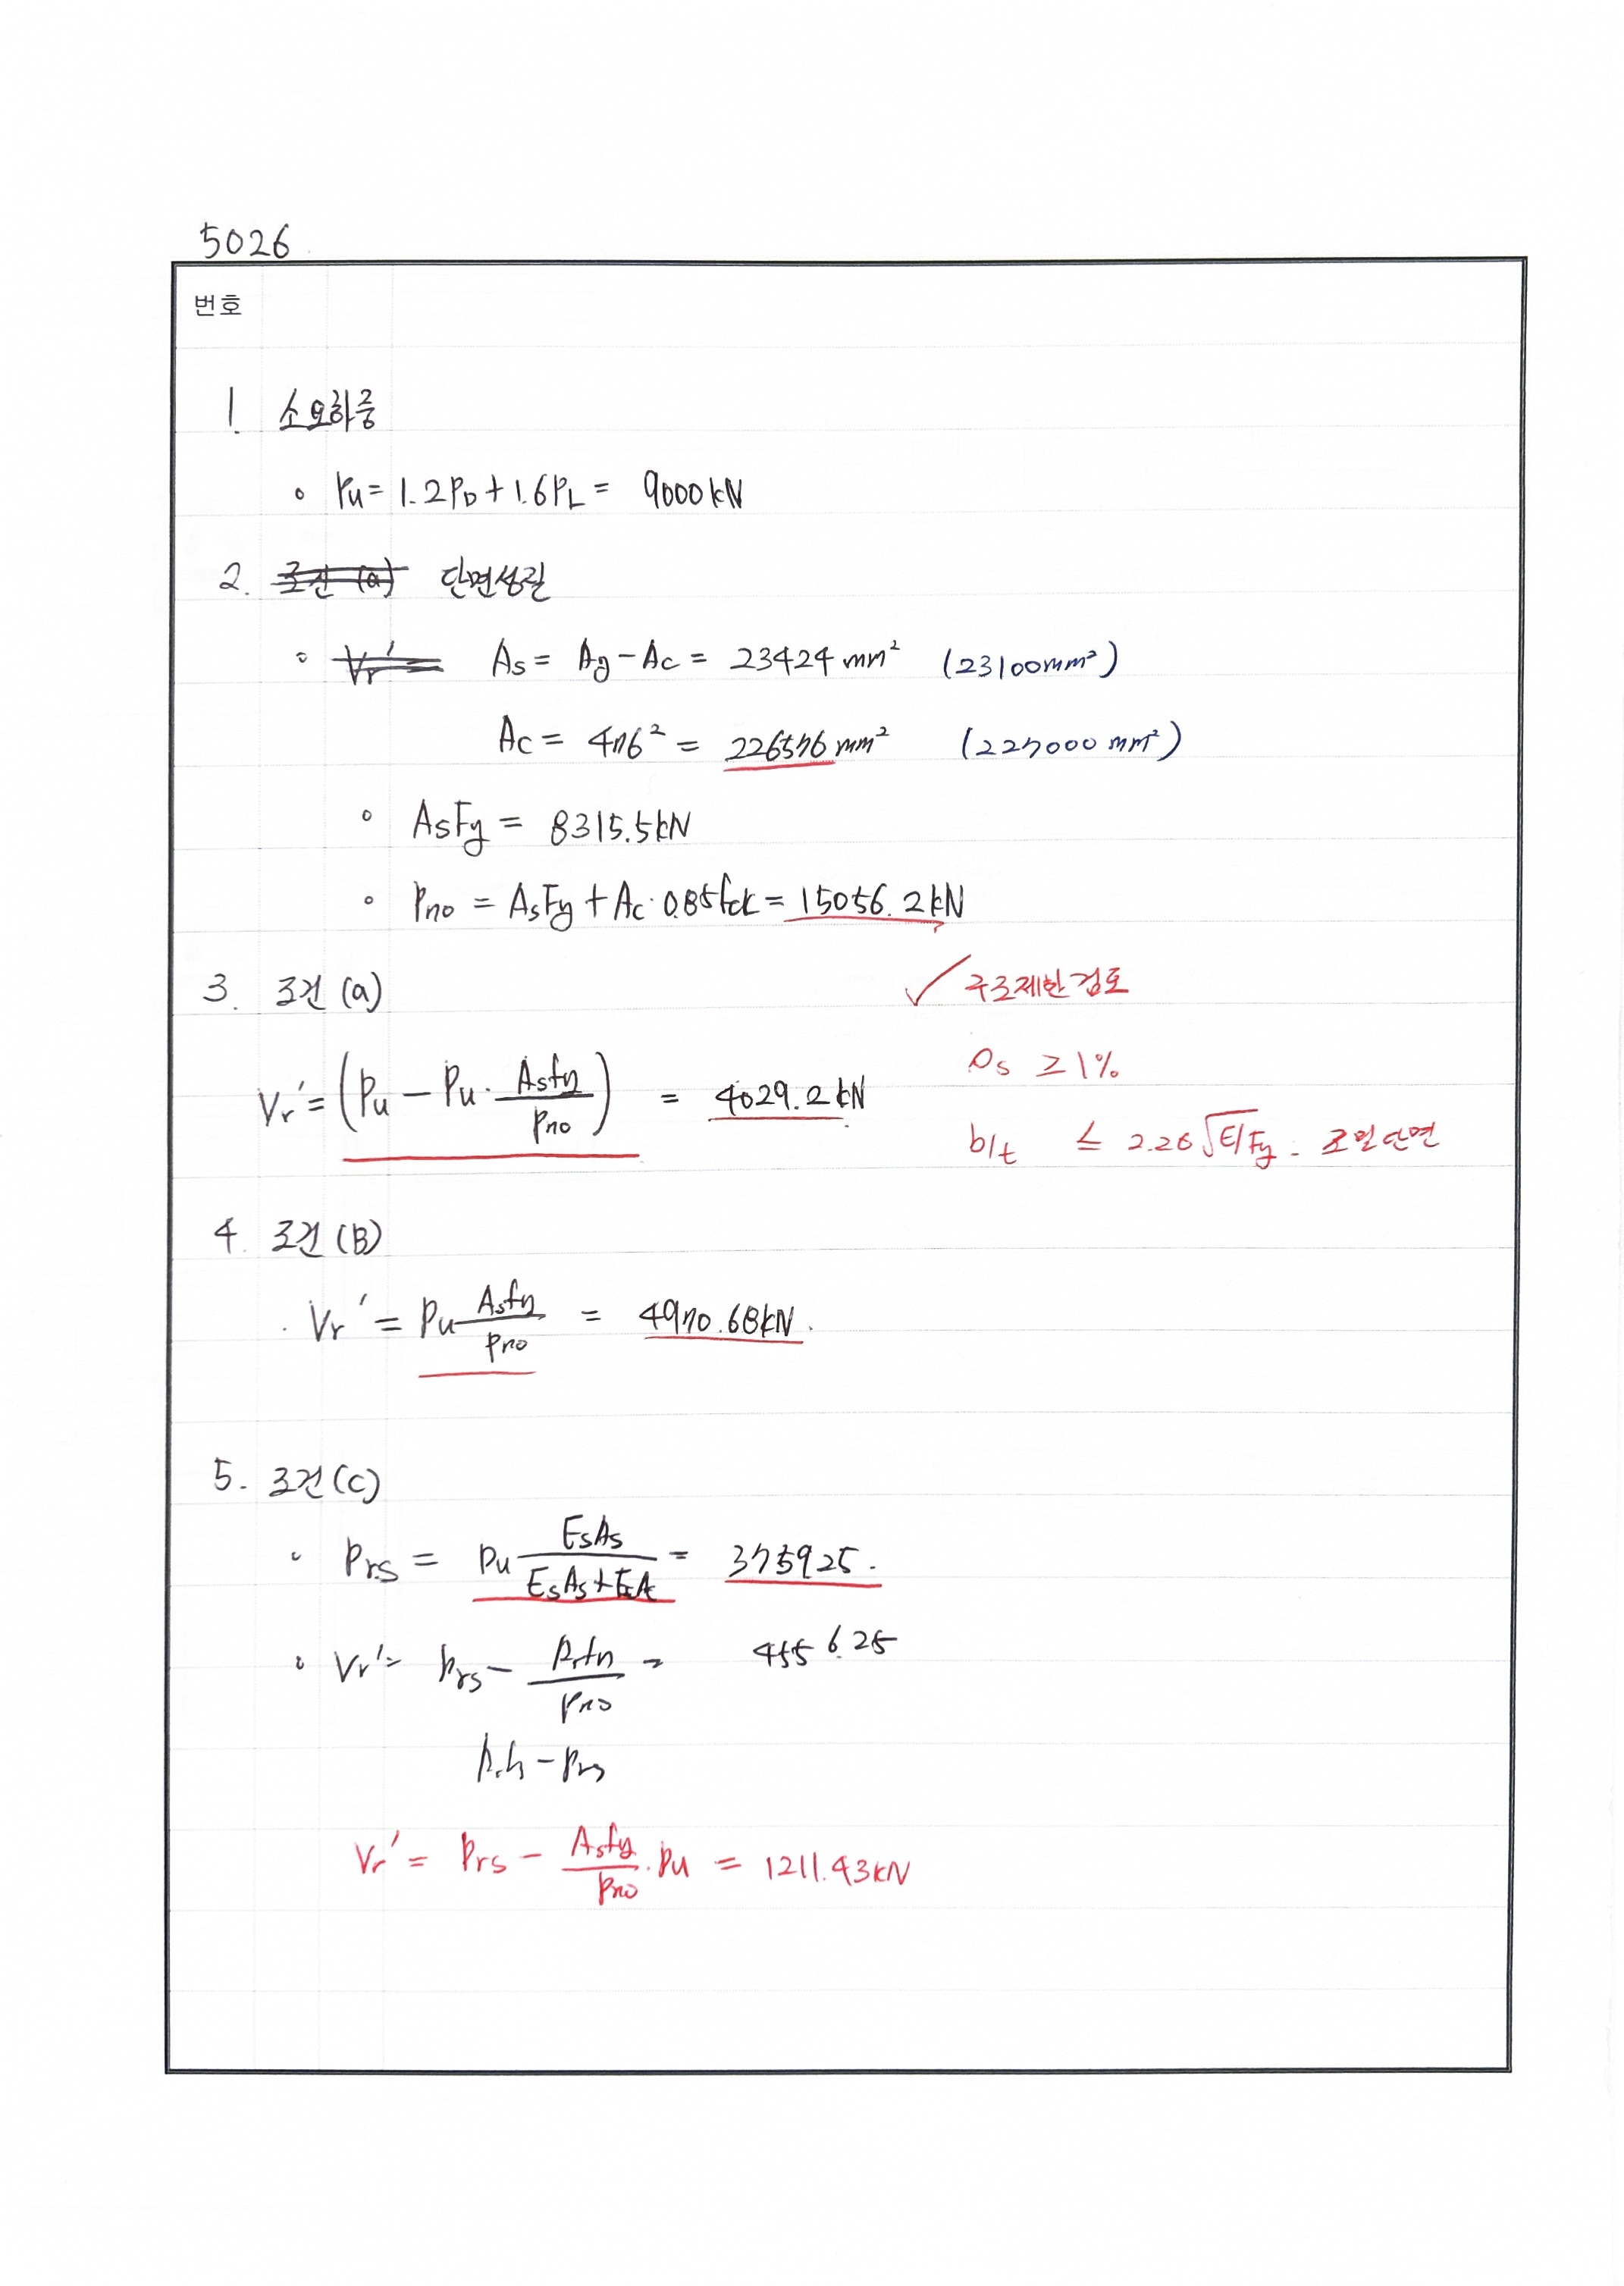 5026
번호
1. 소요하중
∘ Pu = 1.2PD + 1.6PL = 9000 kN
2. 조건 (a) 단면성질
∘ Vr' = As = Ag - Ac = 23424 mm² (23100mm²)
Ac = 476² = 226576 mm² (227000 mm²)
∘ AsFy = 8315.5kN
∘ Pno = AsFy + Ac·0.85fck = 15056.2kN
3. 조건 (a)
✓ 구조제한검토
ρs ≥ 1%
Vr' = (Pu - Pu· Asfy/Pno) = 4029.2kN
b/t ≤ 2.26√E/Fy . 조밀단면
4. 조건 (B)
· Vr' = Pu Asfy/Pno = 4970.68kN.
5. 조건(C)
∘ Prs = Pu EsAs/EsAs+EcAc = 375925.
∘ Vr' = Prs - /Pno = 4556.25
- Prs
Vr' = Prs - Asfy/Pno · Pu = 1211.43kN